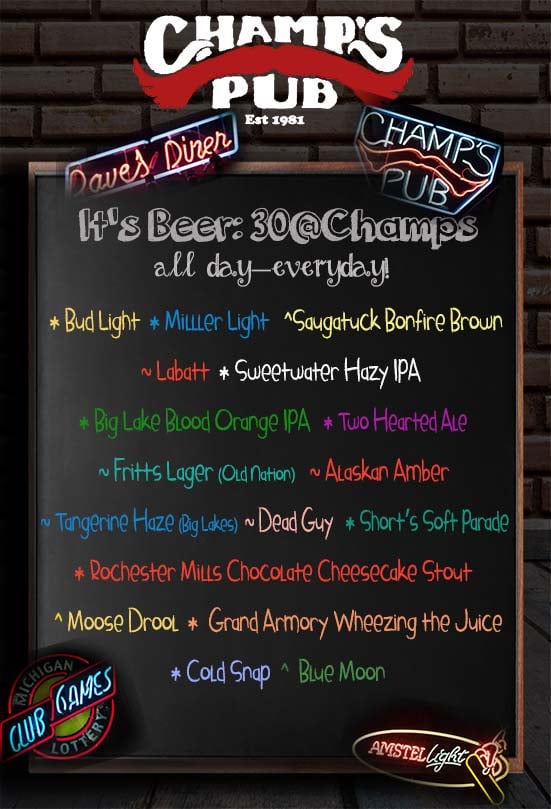 CHAMP'S
PUB
Est 1981
Dave's Diner
CHAMP'S
PUB
It's Beer: 30@Champs
all day—everyday!
* Bud Light * Milller Light ^Saugatuck Bonfire Brown
~ Labatt * Sweetwater Hazy IPA
* Big Lake Blood Orange IPA * Two Hearted Ale
~ Fritts Lager (Old Nation) ~ Alaskan Amber
~ Tangerine Haze (Big Lakes) ~ Dead Guy * Short's Soft Parade
* Rochester Mills Chocolate Cheesecake Stout
^ Moose Drool * Grand Armory Wheezing the Juice
* Cold Snap ^ Blue Moon
MICHIGAN
CLUB GAMES
LOTTERY
AMSTEL Light